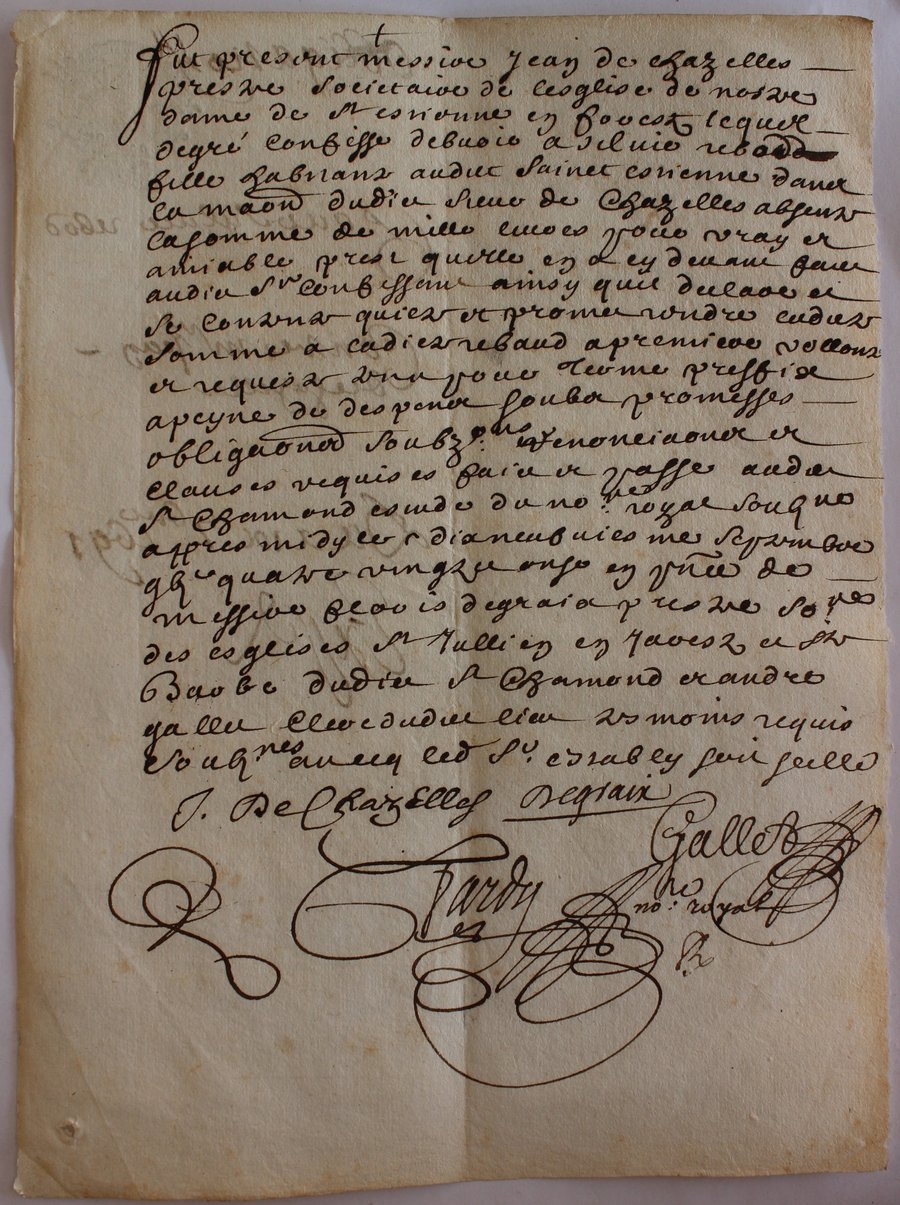 Fut present messire Jean de Chazelles
prestre societaire de lesglise de nostre
dame de St estienne en forest lequel
degré confesse debvoir a silvie rebaud
fille habitant audit Sainct estienne dans
la maōn dudit sieur de Chazelles absente
la somme de mille livres pour vray et
amiable prest quelle en a cy devant faict
audit Sr confessant ainsy quil declare et
se contente quicte et promet rendre ladite
somme a ladicte rebaud a premiere vollonte
et requeste sur pour terme preffix
a peyne de despens soubz promesses
obligaōns soubz.ons renonciaōns et
clauses requises faict et passe audit
St Chamond estude du no.re royal soub.né
appres midy le dixneufviesme septembre
gbc quatre vingtz onze en pñce de
messire fleuris degraix prestre so.res
des esglises St Jullien en Jarest et Ste
Barbe dudit St Chamond et andre
gallet clerc dudit lieu tesmoins requis
soub.nes avecq led Sr. estably soit seellé
J. DeChazelles Degraix
Gallet
Tardy
no.re royal